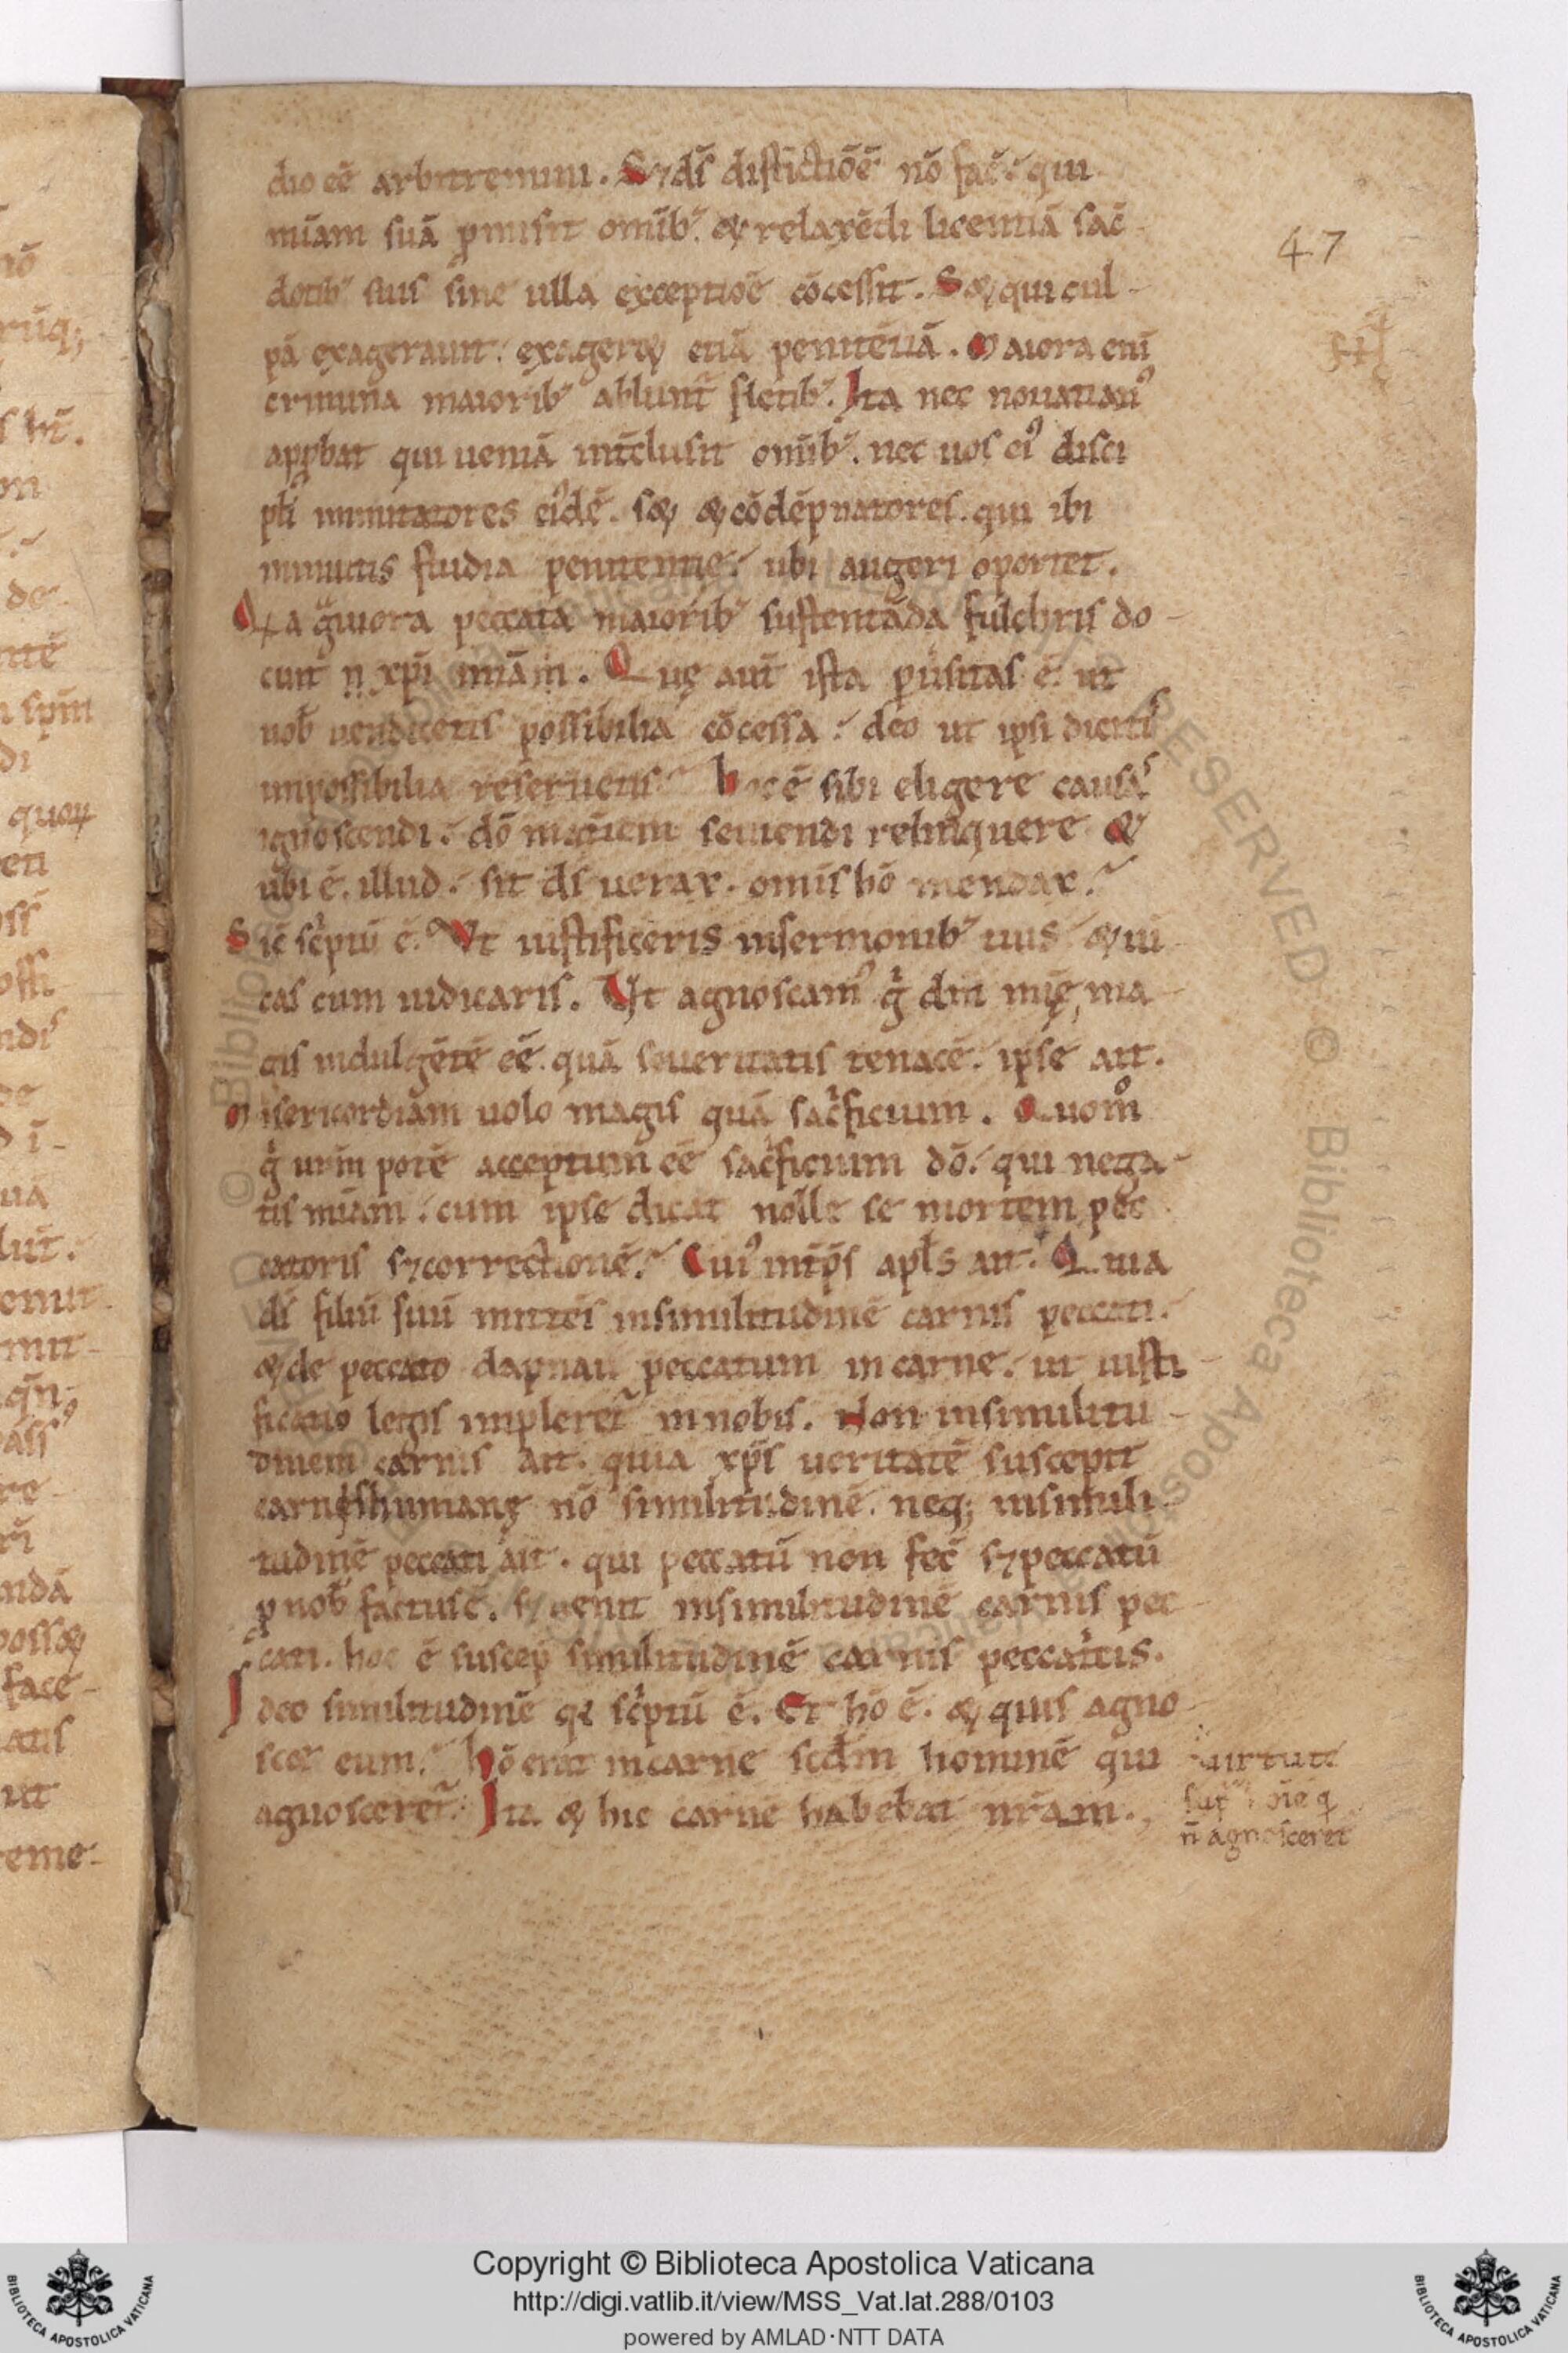 dio eē arbitremini. Sꝫ dſ̄ diſtictiōē nō fac̄. qui
miām ſuā ꝓmiſit omīb; & relaxēdi licentiā ſac̄
dotib; ſuis ſine ulla exceptiōē cōceſſit. S& qui cul-
pā exageraūit. exager& etiā penitētiā. Maiora enī
crimina maiorib; abluunt̄ fletib;. Ita nec nouatian᷒
aꝓbat qui ueniā int̄cluſit omīb;. nec uoſ ei᷒ diſci
pl̄i imitatores ei᷒dē. s& & cōdēpnatoreſ. qui ibi
minuitis ſtudia penitentię. ubi augeri oportet.
Q͛a g͛uiora peccata maiorib; ſuſtentāda fulchris do-
cūt xp̄i miām. Quę aut̄ iſta ꝑuͥſitas ē. ut
uob̄ uendicetis poſſibilia cōceſſa. deo ut ipſi dicitis
impoſſibilia reſeruetis. hoc ē ſibi eligere cauſas
ignoſcendi. dō materiem ſeuiendi relinquere &
ubi ē. illud. ſit dſ̄ uerax. omiſ hō mendax.
Sic̄ ſcͥptū ē. Ut iuſtificeris inſermonib; tuis & ui
cas cum iudicaris. Ut agnoſcam᷒ g͛ dm̄ mię ma-
gis indulgētē eē. quā ſeueritatis tenacē. ipſe ait.
Miſericordiam uolo magis quā sac̄ͥficium. Quom͛o
g͛ urm̄ potē acceptum eē sac̄ͥficium dō. qui nega-
tis miām. cum ipſe dicat nolle ſe mortem pec
catoris ſꝫ correctionē. Cui᷒ int̄p̄s apl̄s ait. Quia
dſ̄ filiū ſuū mittēs inſimilitudinē carnis peccati.
& de peccato dāpnaū peccatum in carne. ut iuſti-
ficatio legis impleret̄ in nobis. Non inſimilitu-
dinem carnis ait. quia xp̄s ueritatē suscepit
carnis humanę nō ſimilitudinē. neq; inſimili-
tudinē peccati ait. qui peccatū non fec̄ ſꝫ peccatū
ꝓ nob̄ factus ē. ſꝫ uenit inſimilitudinē carnis pec-
cati. hoc ē ſuscep̄ ſimilitudinē carnis peccatͥcis.
Ideo ſimilitudinē qꝛ ſcͥptū ē. Et hō ē. & quis agno-
ſcet eum. hō erat in carne ſcd̄m hominē qui
agnoſceret̄. Ita & hic carnē habebat nr̄am.
47
uirtute
ſup̄ oīe q
n̄ agnoſceret
Copyright © Biblioteca Apostolica Vaticana
http://digi.vatlib.it/view/MSS_Vat.lat.288/0103
powered by AMLAD·NTT DATA
BIBLIOTECA APOSTOLICA VATICANA
BIBLIOTECA APOSTOLICA VATICANA